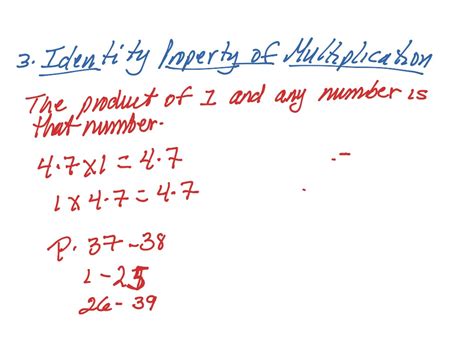 3. Identity Property of Multiplication
The product of 1 and any number is
that number.
4.7 x 1 = 4.7
1 x 4.7 = 4.7
p. 37-38
1-25
26-39